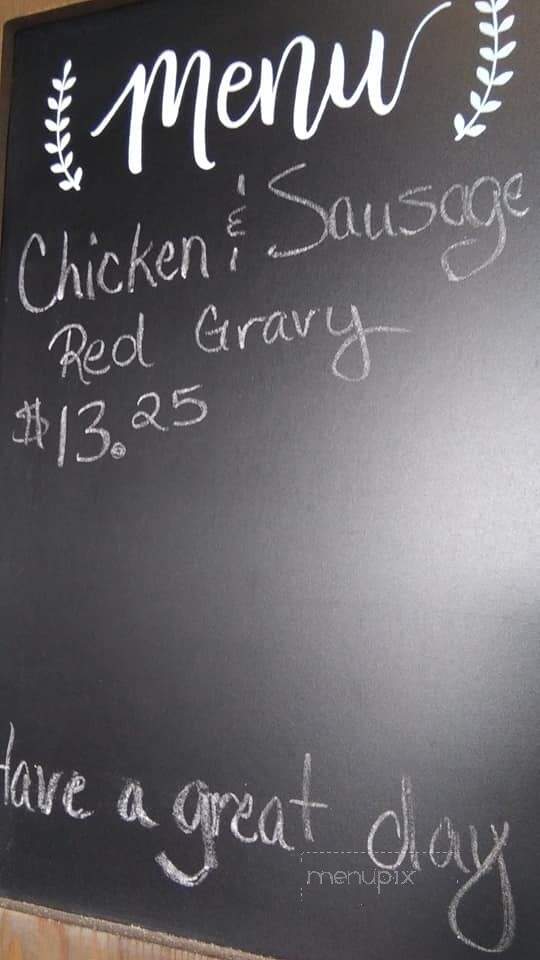 Menu
Chicken & Sausage
Red Gravy
$13.25
Have a great day
menupix